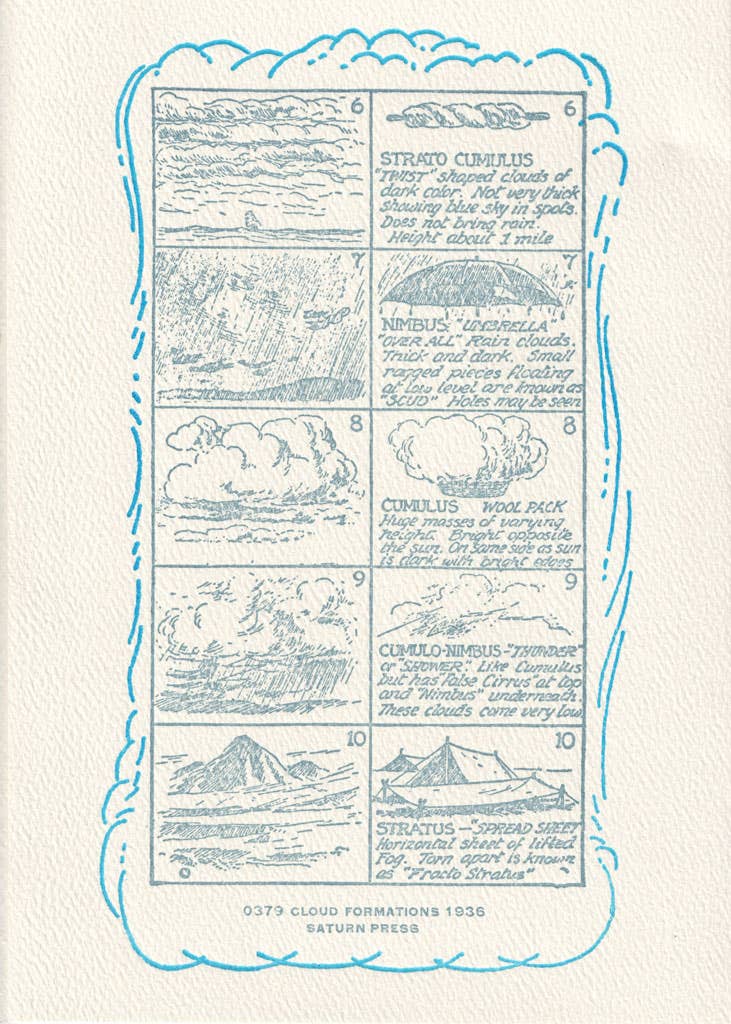 6
6
STRATO CUMULUS
"TWIST" shaped clouds of
dark color. Not very thick
showing blue sky in spots.
Does not bring rain.
Height about 1 mile
7
7
NIMBUS: "UMBRELLA"
"OVER ALL" Rain clouds.
Thick and dark. Small
ragged pieces floating
at low level are known as
"SCUD" Holes may be seen
8
8
CUMULUS WOOL PACK
Huge masses of varying
height. Bright opposite
the sun. On same side as sun
is dark with bright edges
9
9
CUMULO-NIMBUS-"THUNDER"
or "SHOWER". Like Cumulus
but has "False Cirrus" at top
and "Nimbus" underneath.
These clouds come very low
10
10
STRATUS - "SPREAD SHEET
Horizontal sheet of lifted
Fog. Torn apart is known
as "Fracto Stratus"
0379 CLOUD FORMATIONS 1936
SATURN PRESS